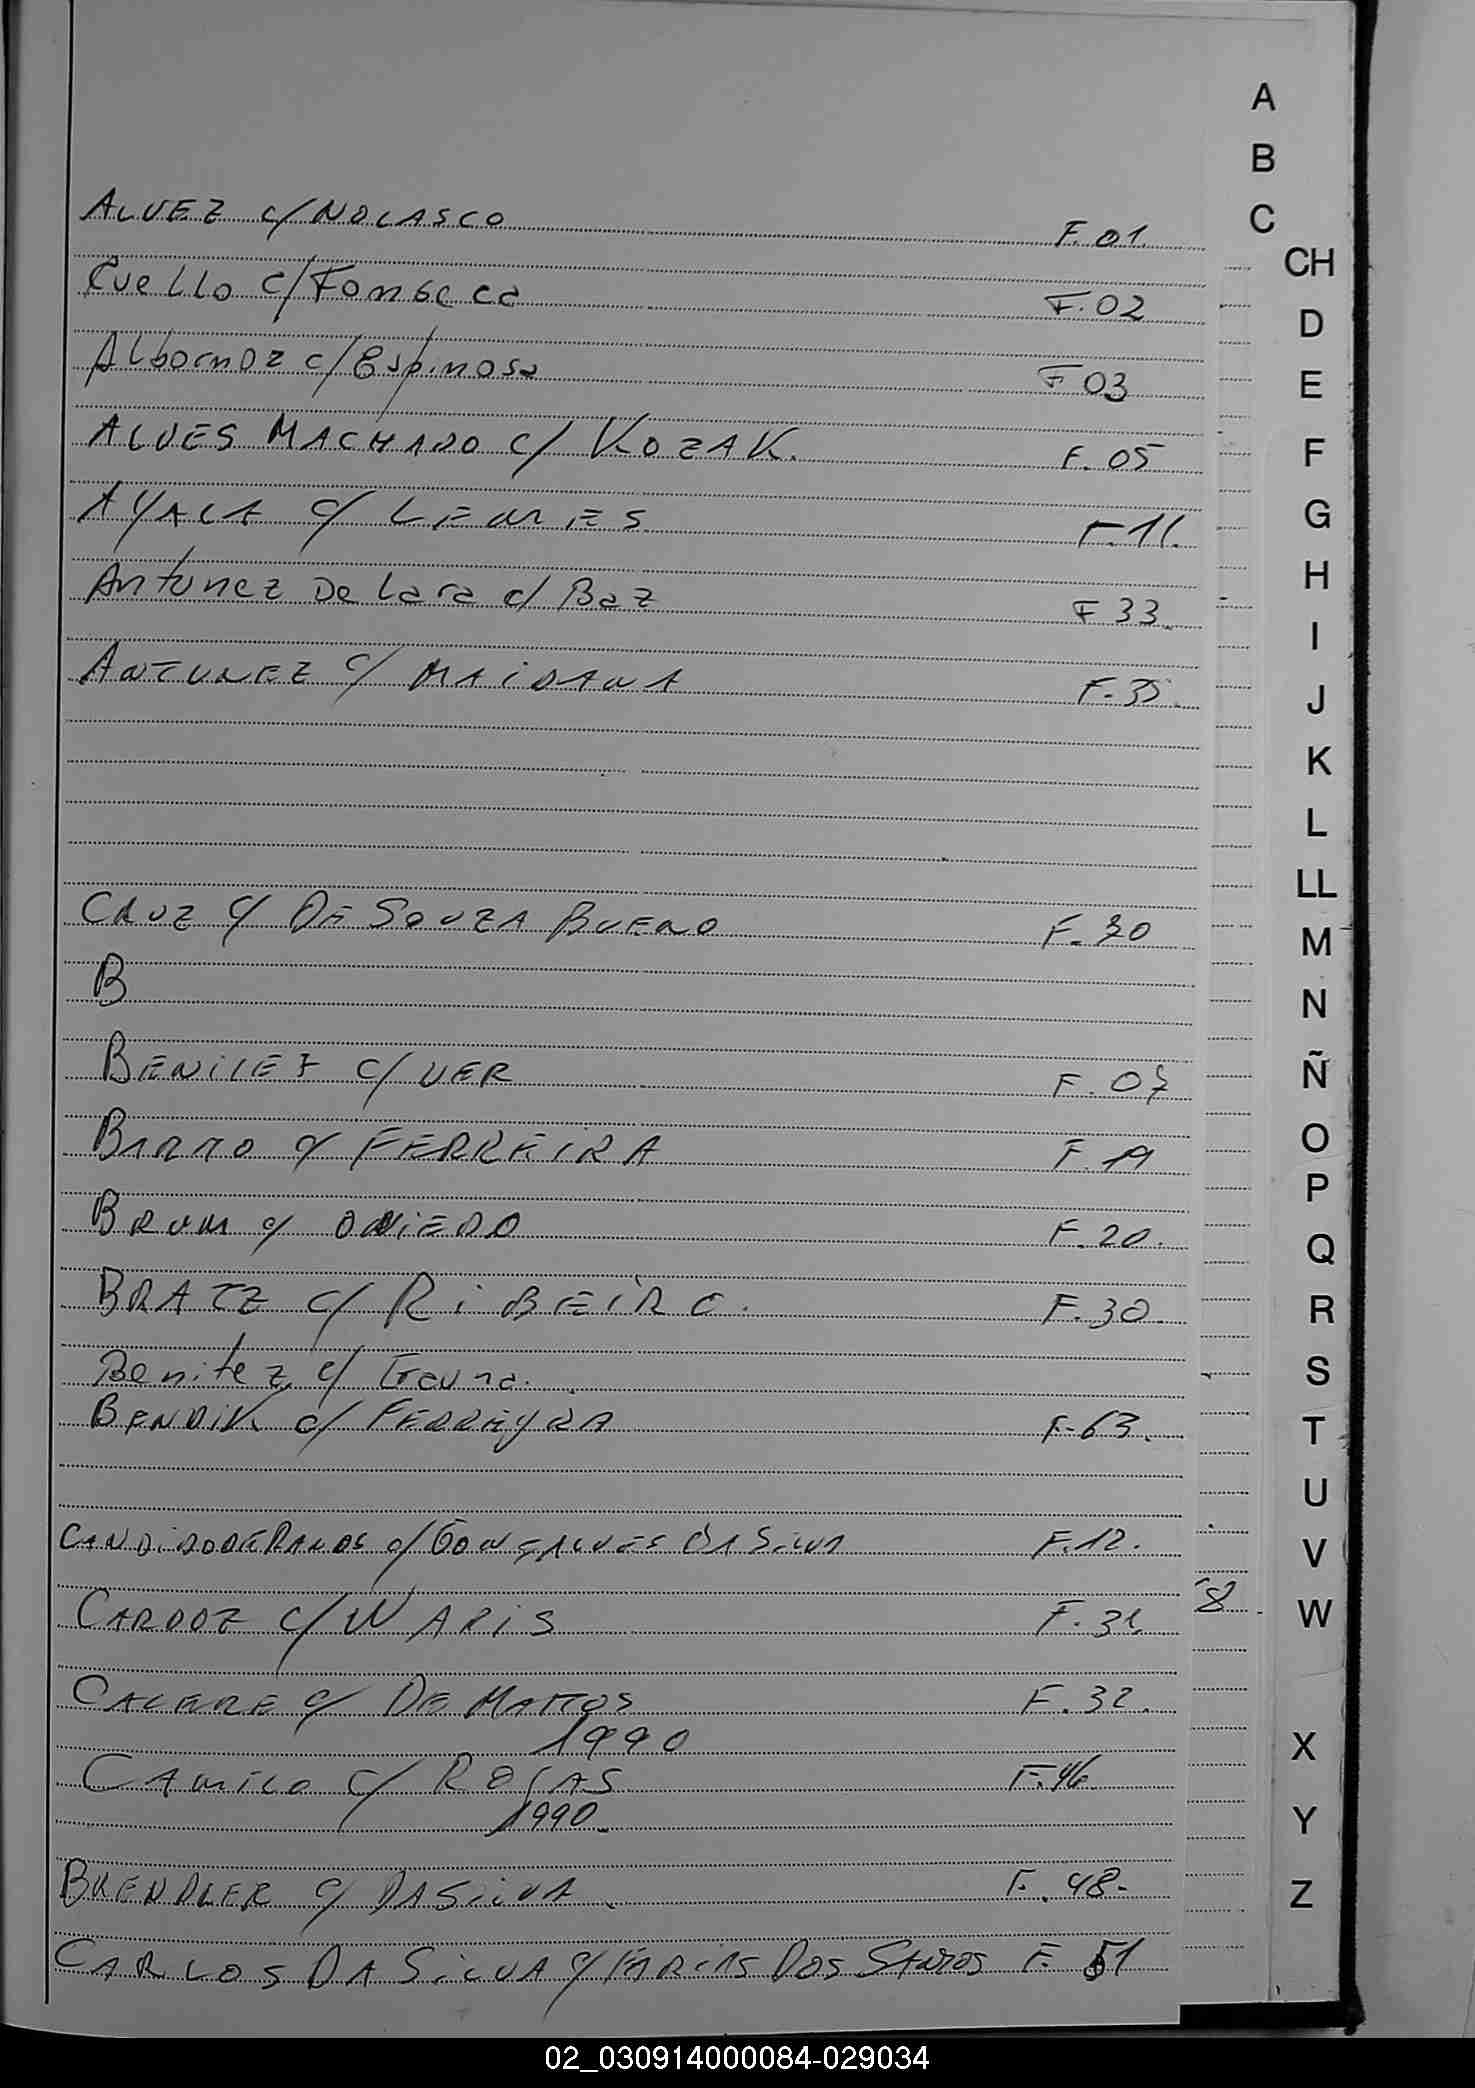 ALVEZ c/ NOLASCO F. 01.
Cuello c/ Fonseca F. 02
Albornoz c/ Espinosa F 03
ALVES MACHADO c/ KOZAK. F. 05
AYALA c/ LEMES F. 11.
Antunez De Lara c/ Baz F 33.
ANTUNEZ c/ MAIDANA F. 35.
CRUZ c/ DE SOUZA BUENO F. 30
B
BENITEZ c/ VER F. 07
BARRO c/ FERREIRA F. 19
BRUM c/ OVIEDO F. 20.
BRATZ c/ RIBEIRO. F. 30.
Benitez c/
BENDIK c/ FERREYRA F-63.
CANDIDO DE RAMOS c/ GONÇALVES DA SILVA F. 12.
CARDOZ c/ WARIS F. 31.
8
CACERE c/ DE MATTOS F. 32.
1990
CAMILO c/ ROJAS F. 46.
1990.
BUENDLER c/ DA SILVA. F. 48.
CARLOS DA SILVA c/ FARIAS DOS SANTOS F. 51
A
B
C
CH
D
E
F
G
H
I
J
K
L
LL
M
N
Ñ
O
P
Q
R
S
T
U
V
W
X
Y
Z
02_030914000084-029034